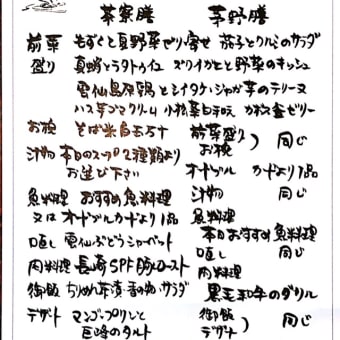 茶寮膳
茅野膳
前菜 もずくと夏野菜ゼリー寄せ 茄子とクルミのサラダ
盛り 真蛸とラタトゥイユ ズワイガニと野菜のキッシュ
雲仙島原鶏とシイタケ・ジャガ芋のテリーヌ
ハス芋ゴマクリーム 小松菜白和え カボス釜ゼリー
お椀
汁物 本日のスープ2種類より
お選び下さい
魚料理 おすすめ魚料理
又は オードブルカードより1品
口直し 雲仙ぶどうシャーベット
肉料理 長崎SPF豚ロースト
御飯 ちりめん茶漬・香の物・サラダ
デザート マンゴープリンと
巨峰のタルト
前菜盛り
お椀 同じ
オードブル カードより1品
汁物 同じ
魚料理
本日おすすめ魚料理
口直し 同じ
肉料理
黒毛和牛のグリル
御飯
デザート 同じ